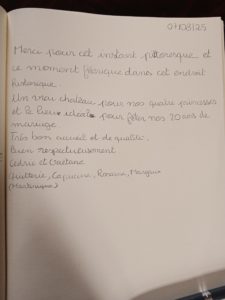 07/08/25
Merci pour cet instant pittoresque et
ce moment féérique dans cet endroit
historique.
Un vrai chateau pour nos quatre princesses
et le lieu idéal pour fêter nos 20 ans de
mariage.
Très bon accueil et de qualité.
Bien respectueusement
Cédric et Gaetane
Capucine, Roxane,
(Martinique)